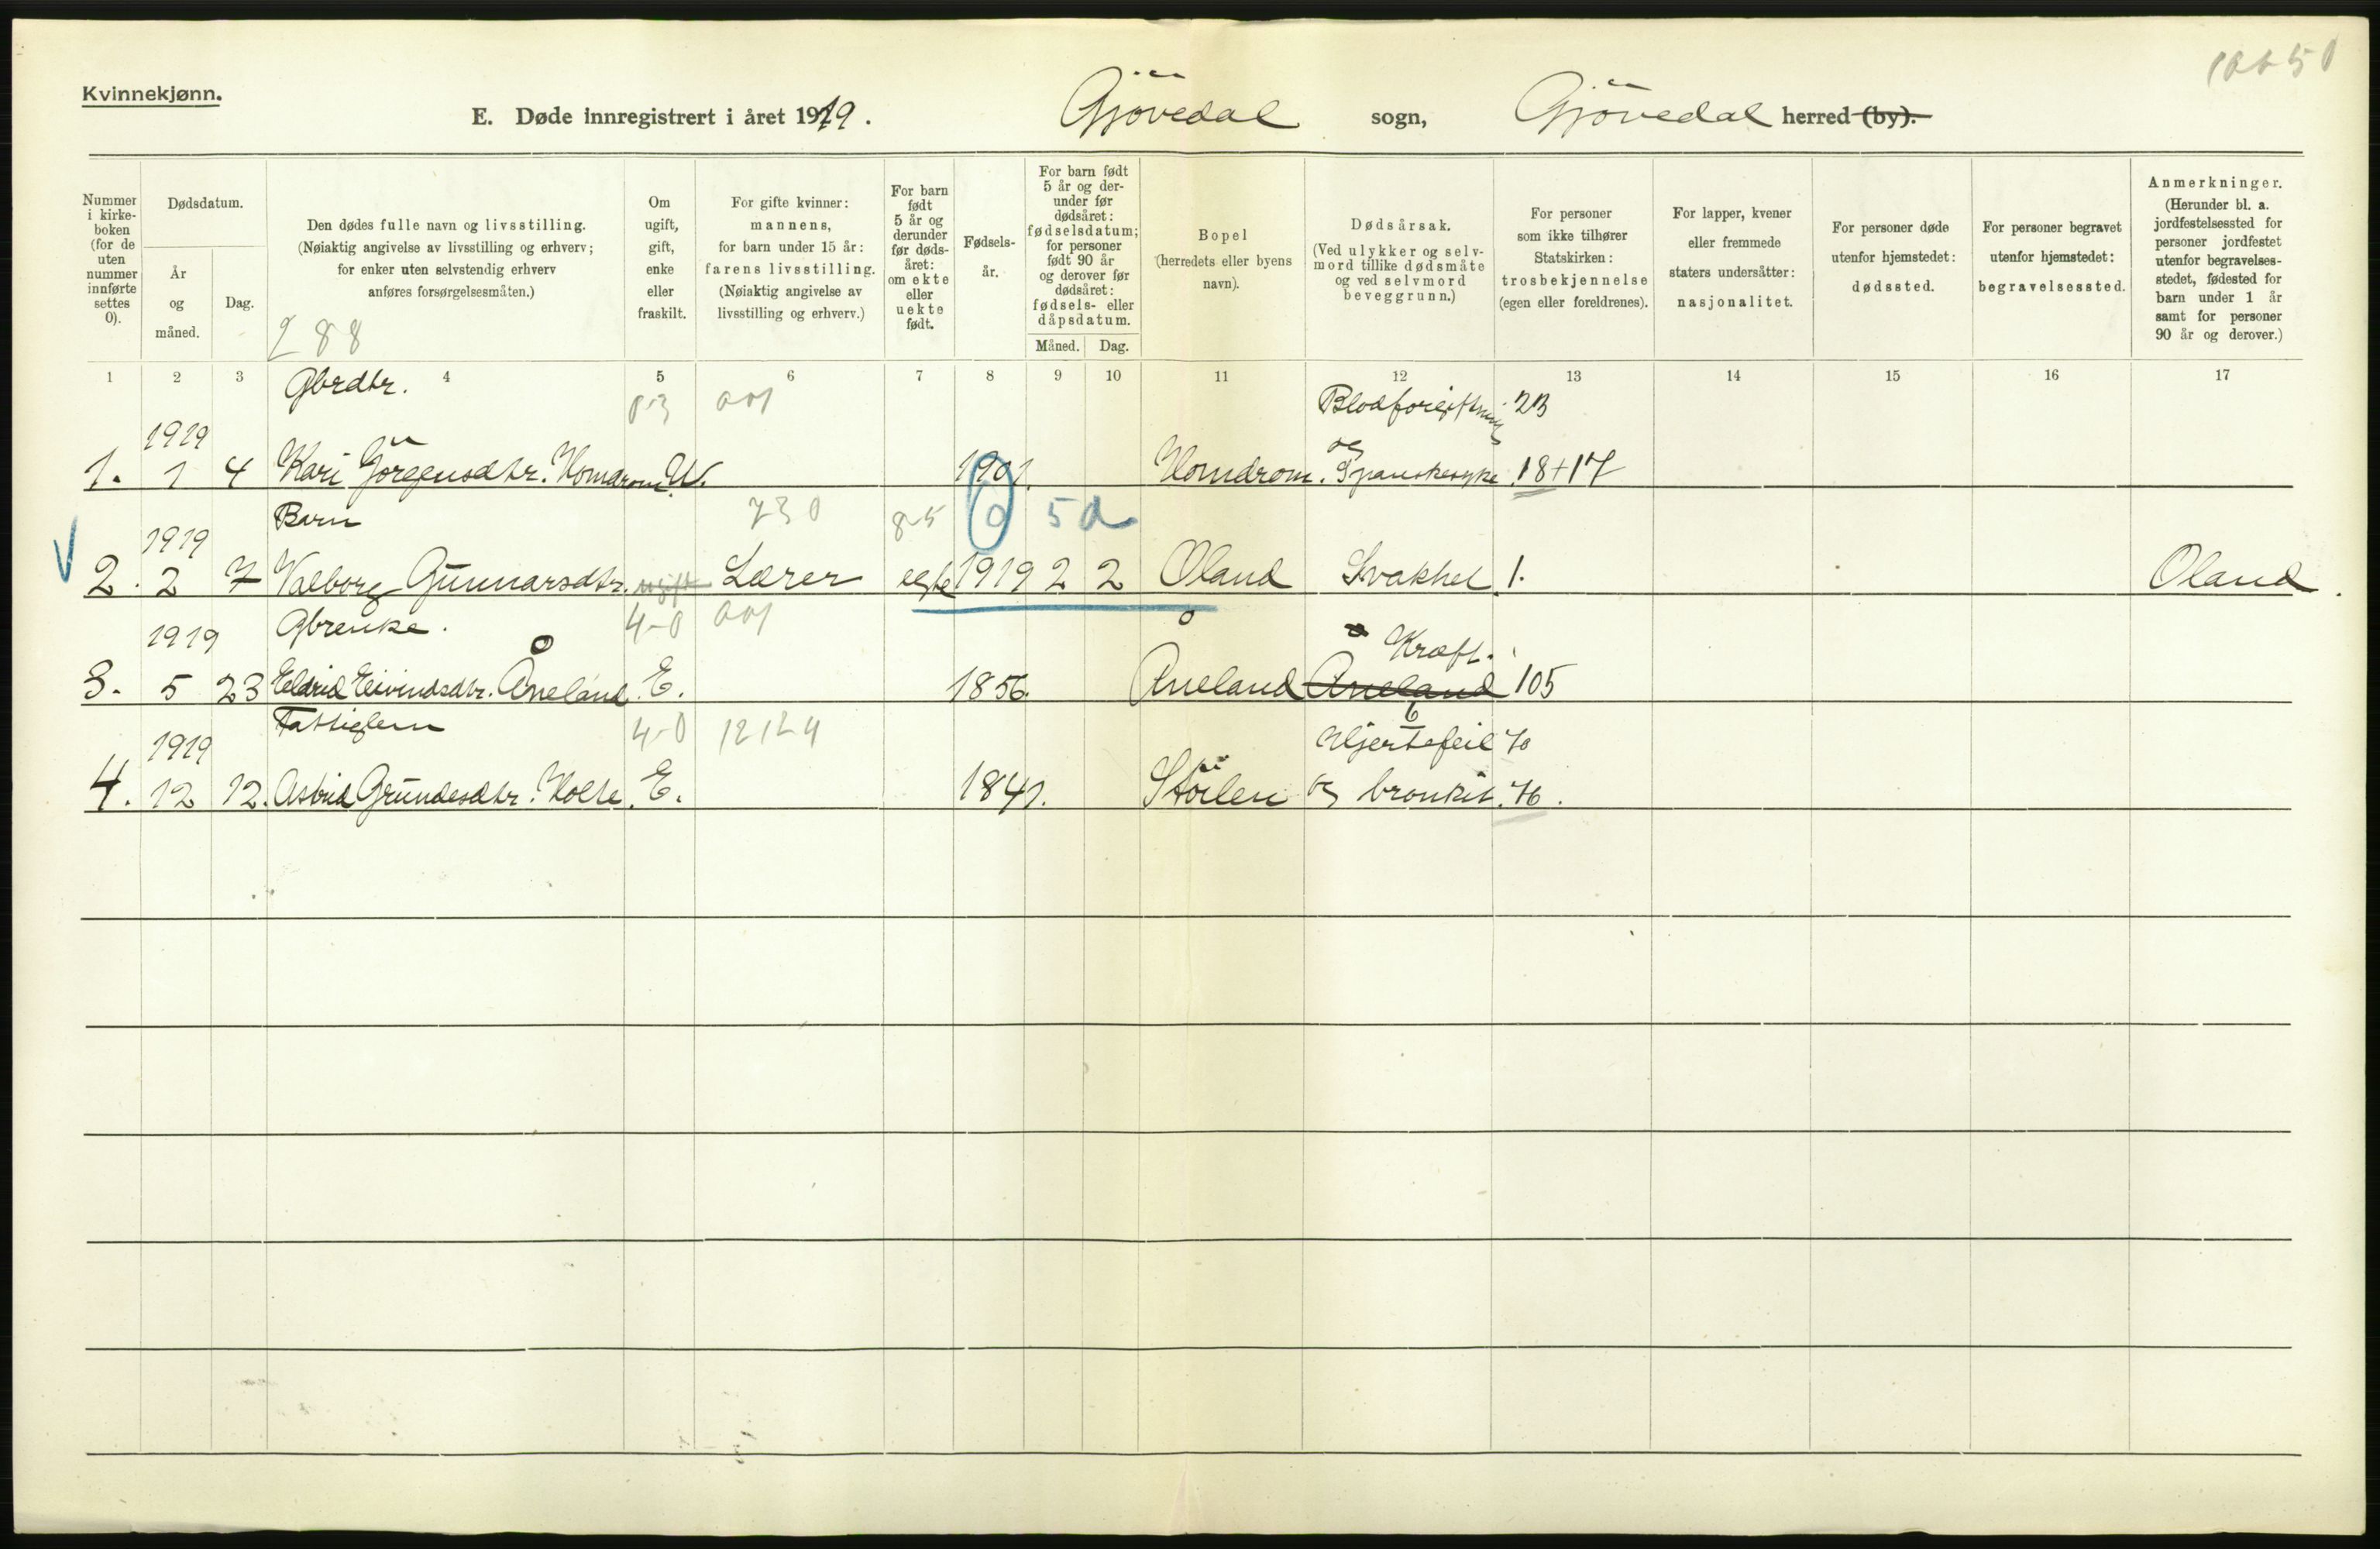 Kvinnekjønn.
E. Døde innregistrert i året 1919. Gjövedal sogn, Gjövedal herred (by).
Nummer i kirke-boken (for de uten nummer innførte settes 0).
Dødsdatum.
År og måned.
Dag.
Den dødes fulle navn og livsstilling. (Nøiaktig angivelse av livsstilling og erhverv; for enker uten selvstendig erhverv anføres forsørgelsesmåten.)
288
Om ugift, gift, enke eller fraskilt.
For gifte kvinner: mannens, for barn under 15 år: farens livsstilling. (Nøiaktig angivelse av livsstilling og erhverv.)
For barn født 5 år og derunder før døds-året: om ekte eller uekte født.
Fødsels-år.
For barn født 5 år og der-under før dødsåret: fødselsdatum; for personer født 90 år og derover før dødsåret: fødsels- eller dåpsdatum.
Måned.
Dag.
Bopel (herredets eller byens navn).
Dødsårsak. (Ved ulykker og selv-mord tillike dødsmåte og ved selvmord beveggrunn.)
For personer som ikke tilhører Statskirken: trosbekjennelse (egen eller foreldrenes).
For lapper, kvener eller fremmede staters undersåtter: nasjonalitet.
For personer døde utenfor hjemstedet: dødssted.
For personer begravet utenfor hjemstedet: begravelsessted.
Anmerkninger. (Herunder bl. a. jordfestelsessted for personer jordfestet utenfor begravelses-stedet, fødested for barn under 1 år samt for personer 90 år og derover.)
1 2 3 4 5 6 7 8 9 10 11 12 13 14 15 16 17
Gbrdtr. Blodforgiftning 23
1919 og
1. 1 4 Kari Görgensdtr. Homdrom U. 1901. Homdrom. Spanskesyke. 18+17
Barn 730 8-5 0 5d
1919
2. 2 7 Valborg Gunnarsdtr. ugift Lærer egte 1919 2 2 Oland Svakhet 1. Oland.
1919 Gbrenke. 4-0 Kræft.
3. 5 23 Eldrid Eivindsdtr. Åneland E. 1856. Åneland Åneland 105
1919 Fattiglem 4-0 12124 Hjertefeil 70
4. 12 12. Astrid Grundesdtr. Holte. E. 1841. Stöilen og bronkit. 76.